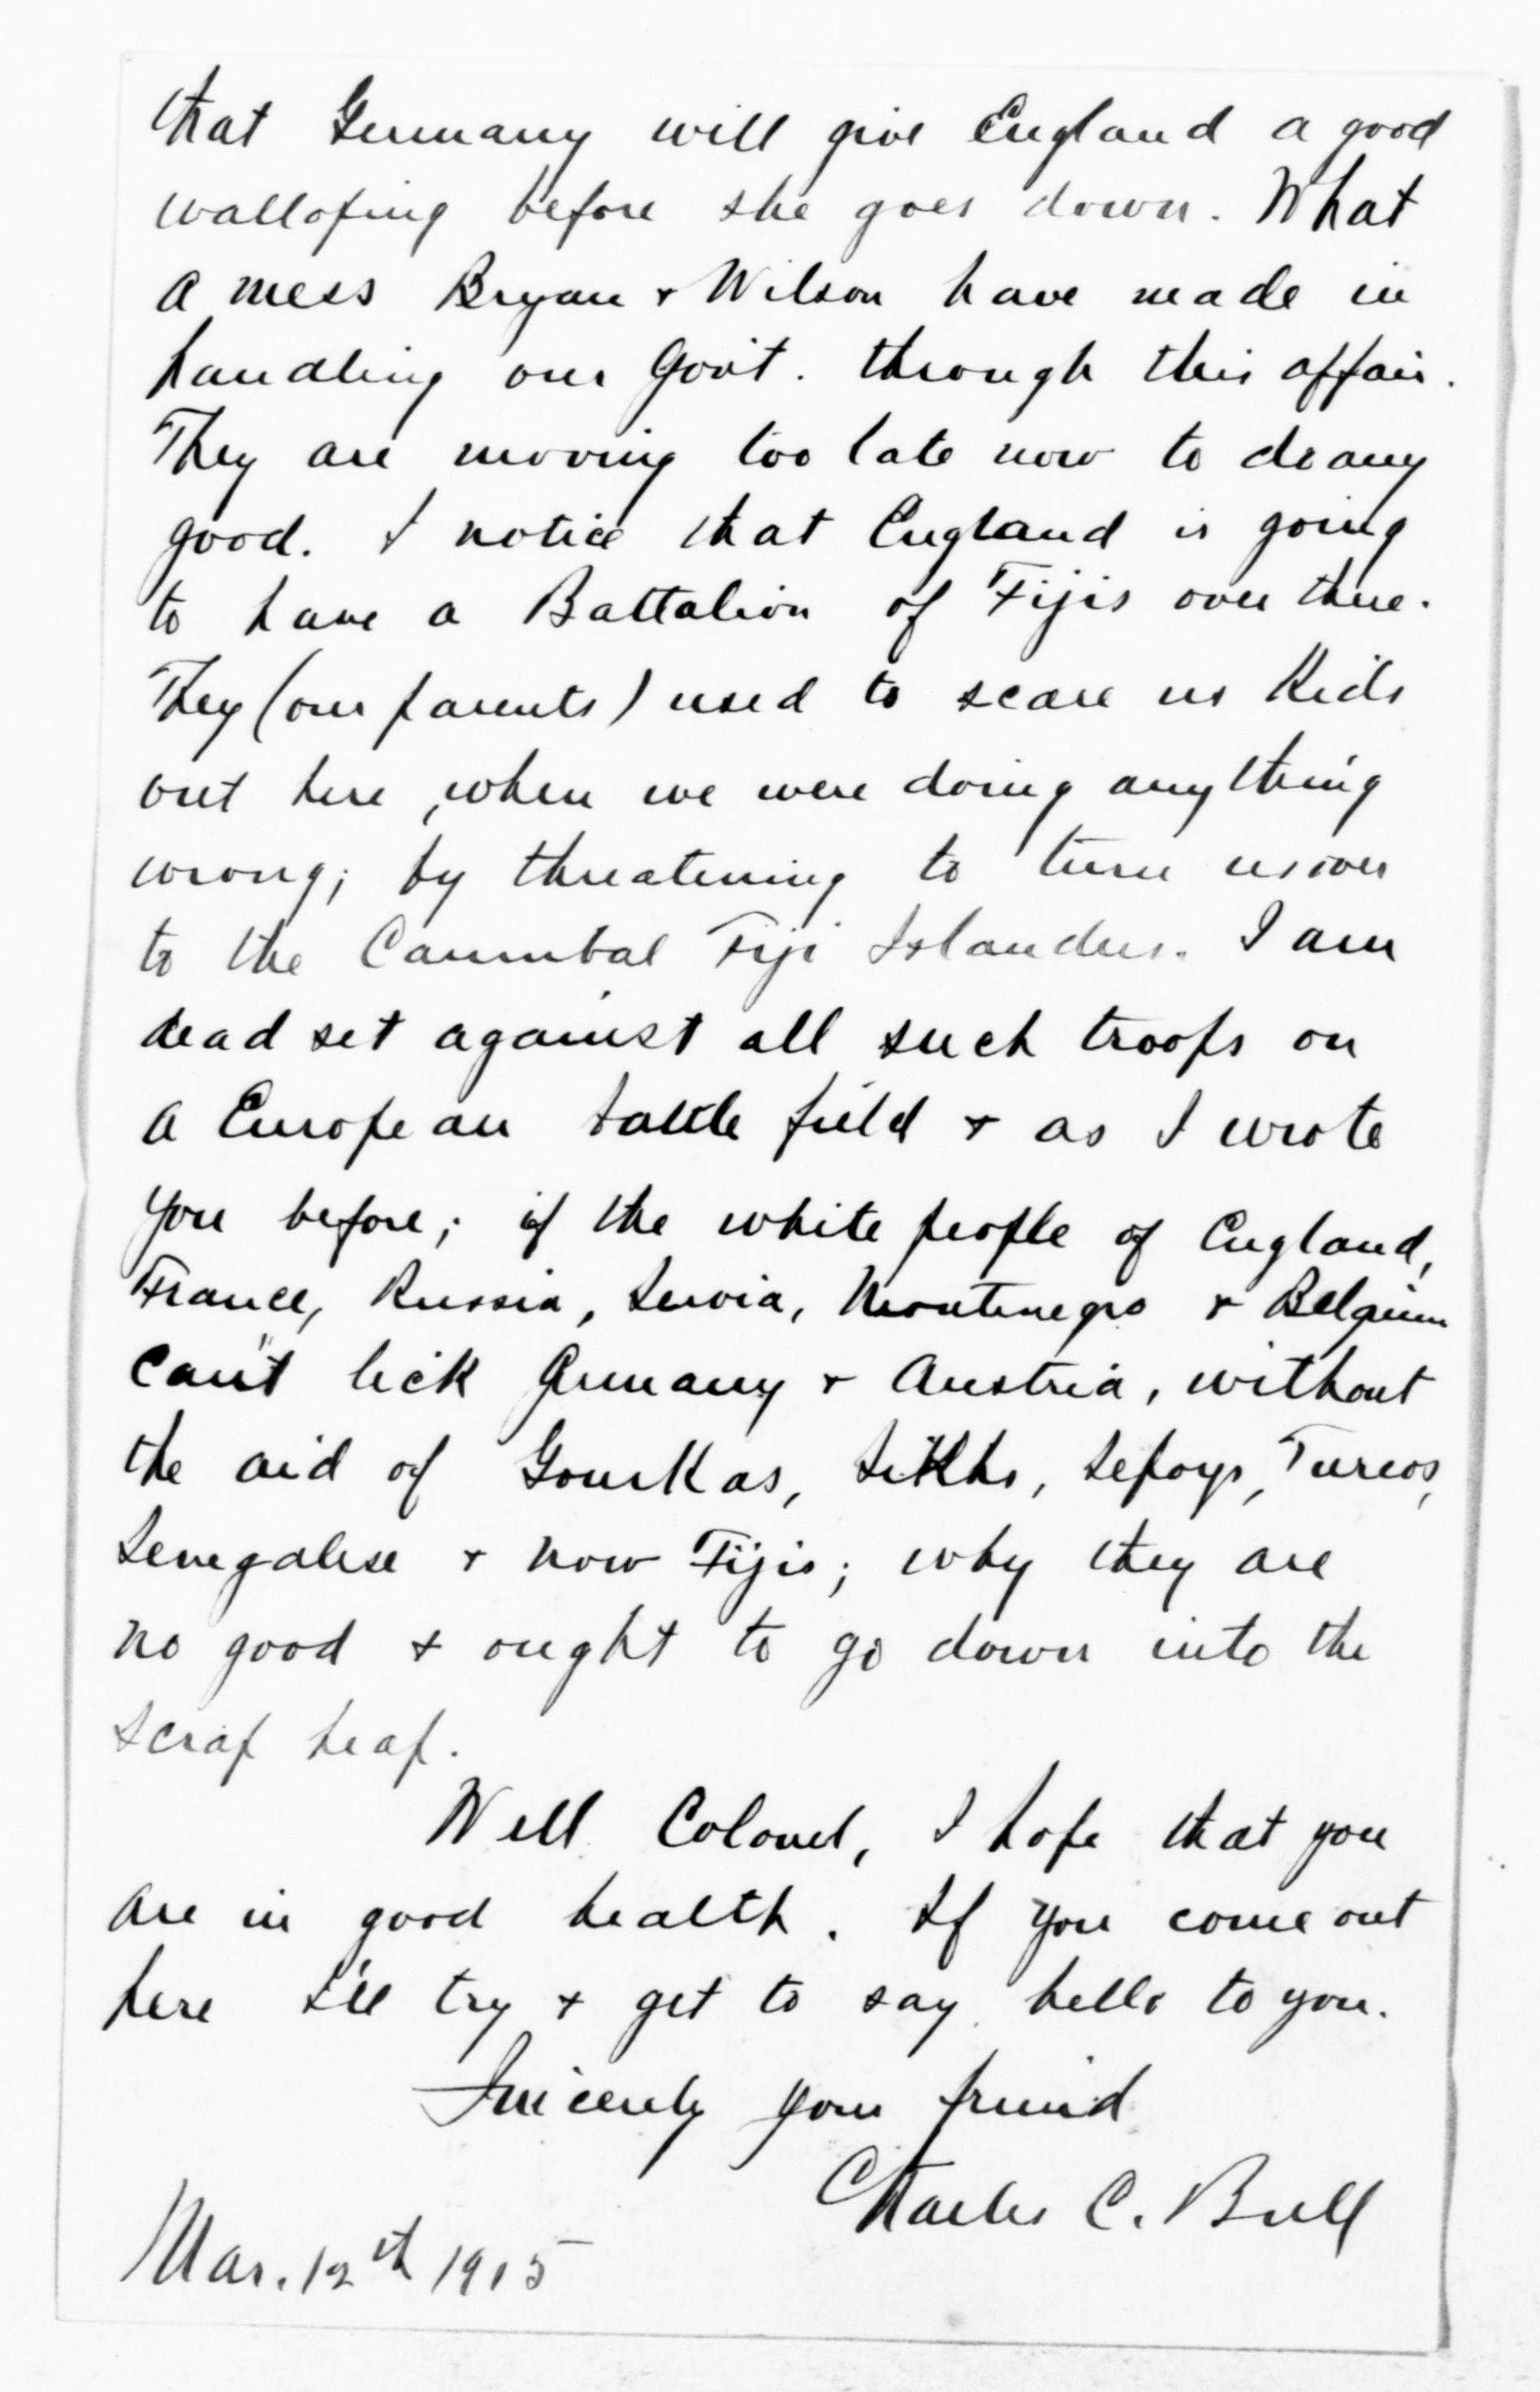 that Germany will give England a good
walloping before she goes down. What
a mess Bryan & Wilson have made in
handling our Gov't. through this affair.
They are moving too late now to do any
good. I notice that England is going
to have a Battalion of Fijis over there.
They (our parents) used to scare us Kids
out here, when we were doing anything
wrong; by threatening to turn us over
to the Cannibal Fiji Islanders. I am
dead set against all such troops on
a European battle field & as I wrote
you before; if the white people of England,
France, Russia, Servia, Montenegro & Belgium
can't lick Germany & Austria, without
the aid of Gourkas, Sikhs, Sepoys, Turcos,
Senegalese & now Fijis; why they are
no good & ought to go down into the
scrap heap.
Well Colonel, I hope that you
are in good health. If you come out
here I'll try & get to say hello to you.
Sincerely your friend
Charles C. Bull
Mar. 12th 1915